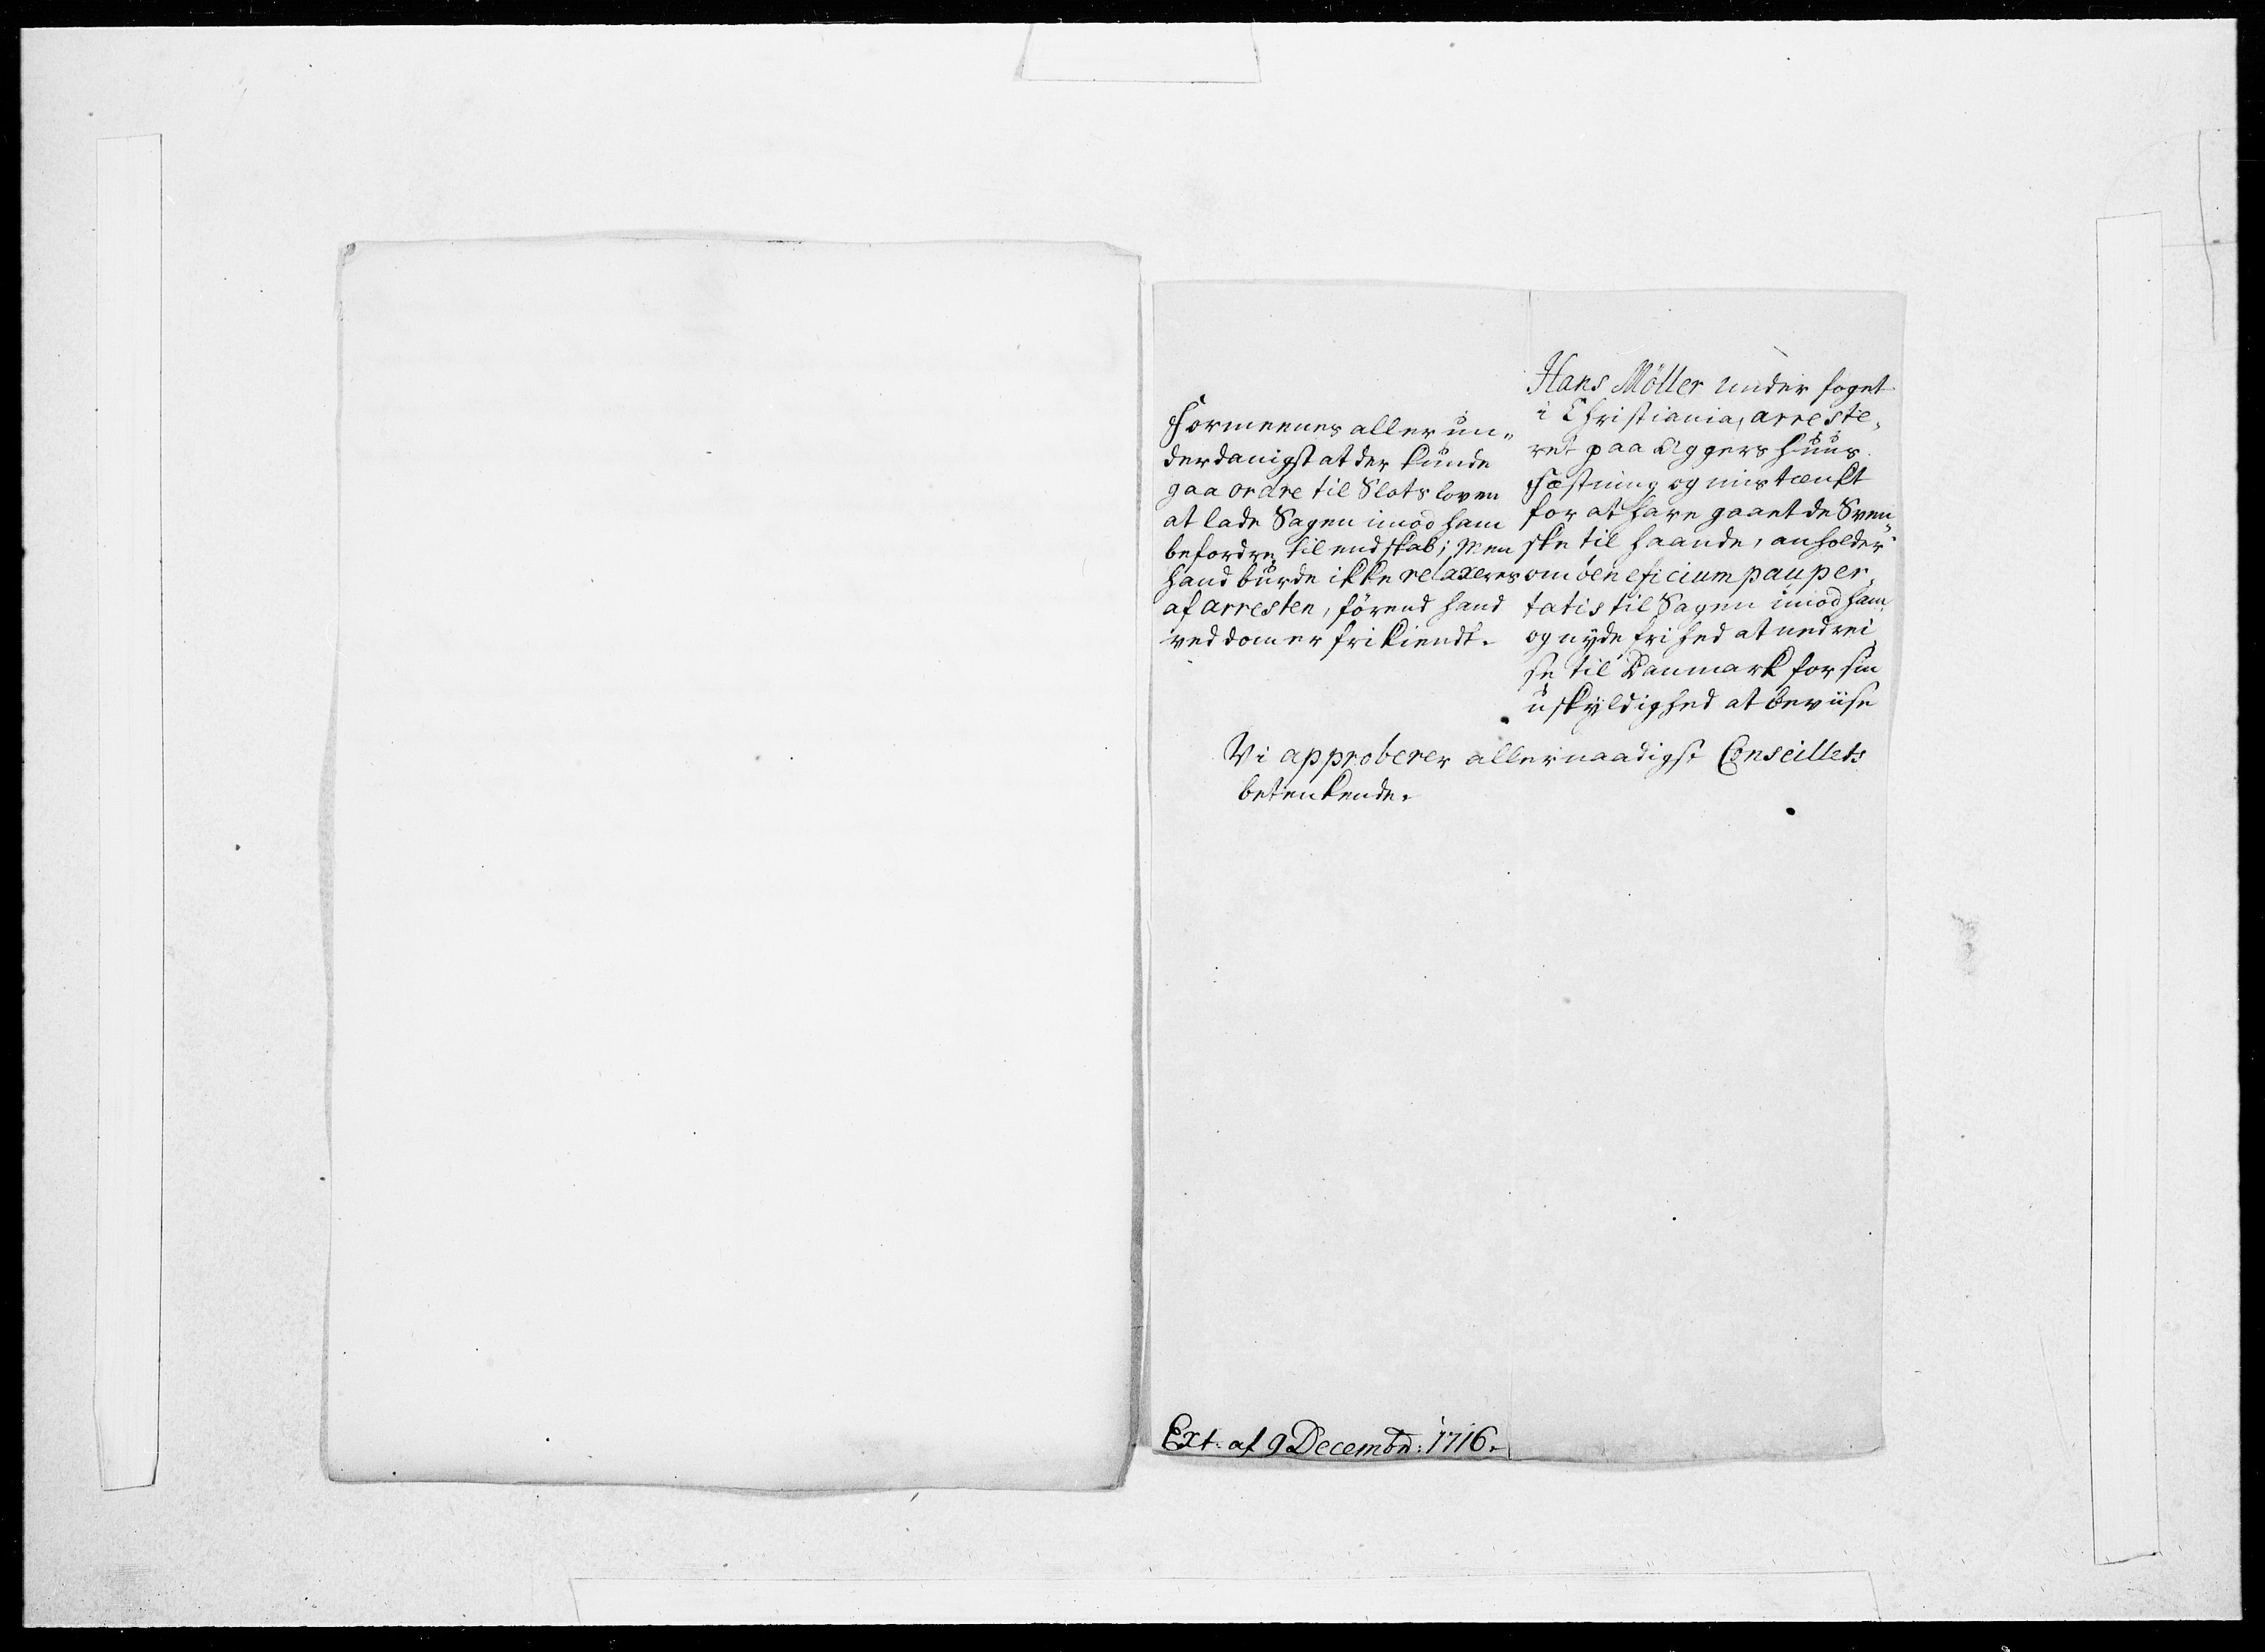 Hans Möller under foget
i Christiania, arreste,
ret paa Aggershuus
Fæstning og mistænkt
for at have gaaet de Sven„
ske til haande, anholder
om beneficium pauper,
tatis til Sagen imod ham,
og nyde frihed at nedrei,
se til Danmark for sin
uskyldighed at beviise
Formeenes allerun„
derdanigst at der kunde
gaa ordre til Slotsloven
at lade Sagen imod ham
befordre til endskab; Men
hand burde ikke relaxeres
af arresten, förend hand
ved dom er frikiendt.
Vi approberer allernaadigst Conseillets
betenkende.
Ext. af 9 Decembr: 1716.